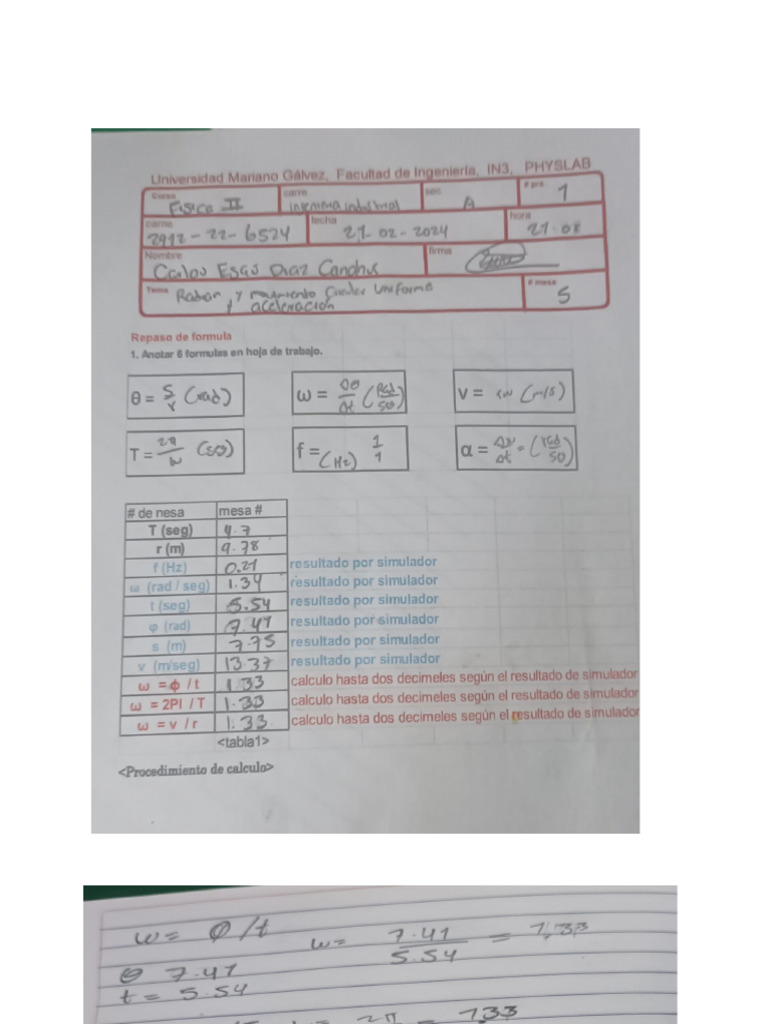 Universidad Mariano Gálvez, Facultad de Ingeniería, IN3, PHYSLAB
Curso Física II carre ingenieria industrial sec A # pra 1
carne 2912-22-6524 fecha 21-02-2024 hora 21:08
Nombre Carlos Diaz firma
Tema Radian y movimiento Circular Uniforme # mesa 5
y aceleracion
Repaso de formula
1. Anotar 6 formulas en hoja de trabajo.
θ = S/r (rad) ω = Δθ/Δt (Rad/sg) v = rw (m/s)
T = 2π/w (sg) f = 1/T (Hz) α = Δw/Δt = (rad/sg)
# de nesa mesa #
T (seg) 4.7
r (m) 9.98
f (Hz) 0.21 resultado por simulador
ω (rad / seg) 1.34 resultado por simulador
t (seg) 5.54 resultado por simulador
φ (rad) 7.41 resultado por simulador
s (m) 7.75 resultado por simulador
v (m/seg) 13.37 resultado por simulador
ω = ϕ / t 1.33 calculo hasta dos decimeles según el resultado de simulador
ω = 2PI / T 1.33 calculo hasta dos decimeles según el resultado de simulador
ω = v / r 1.33 calculo hasta dos decimeles según el resultado de simulador
<tabla1>
<Procedimiento de calculo>
w = Ø/t w = 7.41/5.54 = 1.33
θ 7.41
t = 5.54
2π = 1.33